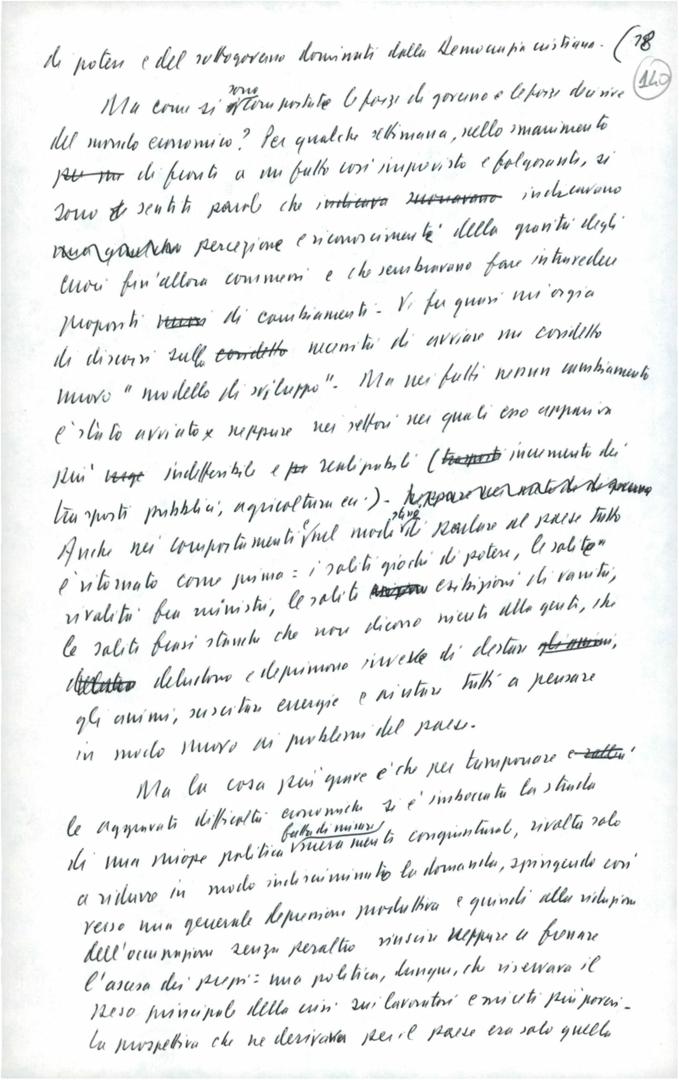 di potere e del sottogoverno dominati dalla Democrazia cristiana. (28
140
Ma come si sono comportate le forze di governo e le forze decisive
del mondo economico? Per qualche settimana, nello smarrimento
di fronte a un fatto così imprevisto e folgorante, si
sono sentite parole che indicava suonavano indicavano
percezione e riconoscimento della gravità degli
errori fin'allora commessi e che sembravano fare intravedere
propositi di cambiamenti. Vi fu quasi un'orgia
di discorsi sulla cosidetta necessità di avviare un cosidetto
nuovo "modello di sviluppo". Ma nei fatti nessun cambiamento
è stato avviato neppure nei settori nei quali esso appariva
più indifferibile e realizzabile (trasporti incremento dei
trasporti pubblici, agricoltura ecc.).
Anche nei comportamenti e nel modo di parlare al paese tutto
è ritornato come prima: i soliti giochi di potere, le solite
rivalità fra ministri, le solite esibizioni di vanità,
le solite frasi stanche che non dicono niente alla gente, che
deludono e deprimono invece di destare gli animi,
gli animi, suscitare energie e aiutare tutti a pensare
in modo nuovo ai problemi del paese.
Ma la cosa più grave è che per tamponare
le aggravate difficoltà economiche si è imboccata la strada
di una miope politica fatta di misure meramente congiunturali, rivolta solo
a ridurre in modo indiscriminato la domanda, spingendo così
verso una generale depressione produttiva e quindi alla riduzione
dell'occupazione senza peraltro riuscire neppure a frenare
l'ascesa dei prezzi: una politica, dunque, che riservava il
peso principale della crisi sui lavoratori e sui ceti più poveri.
La prospettiva che ne derivava per il paese era solo quella